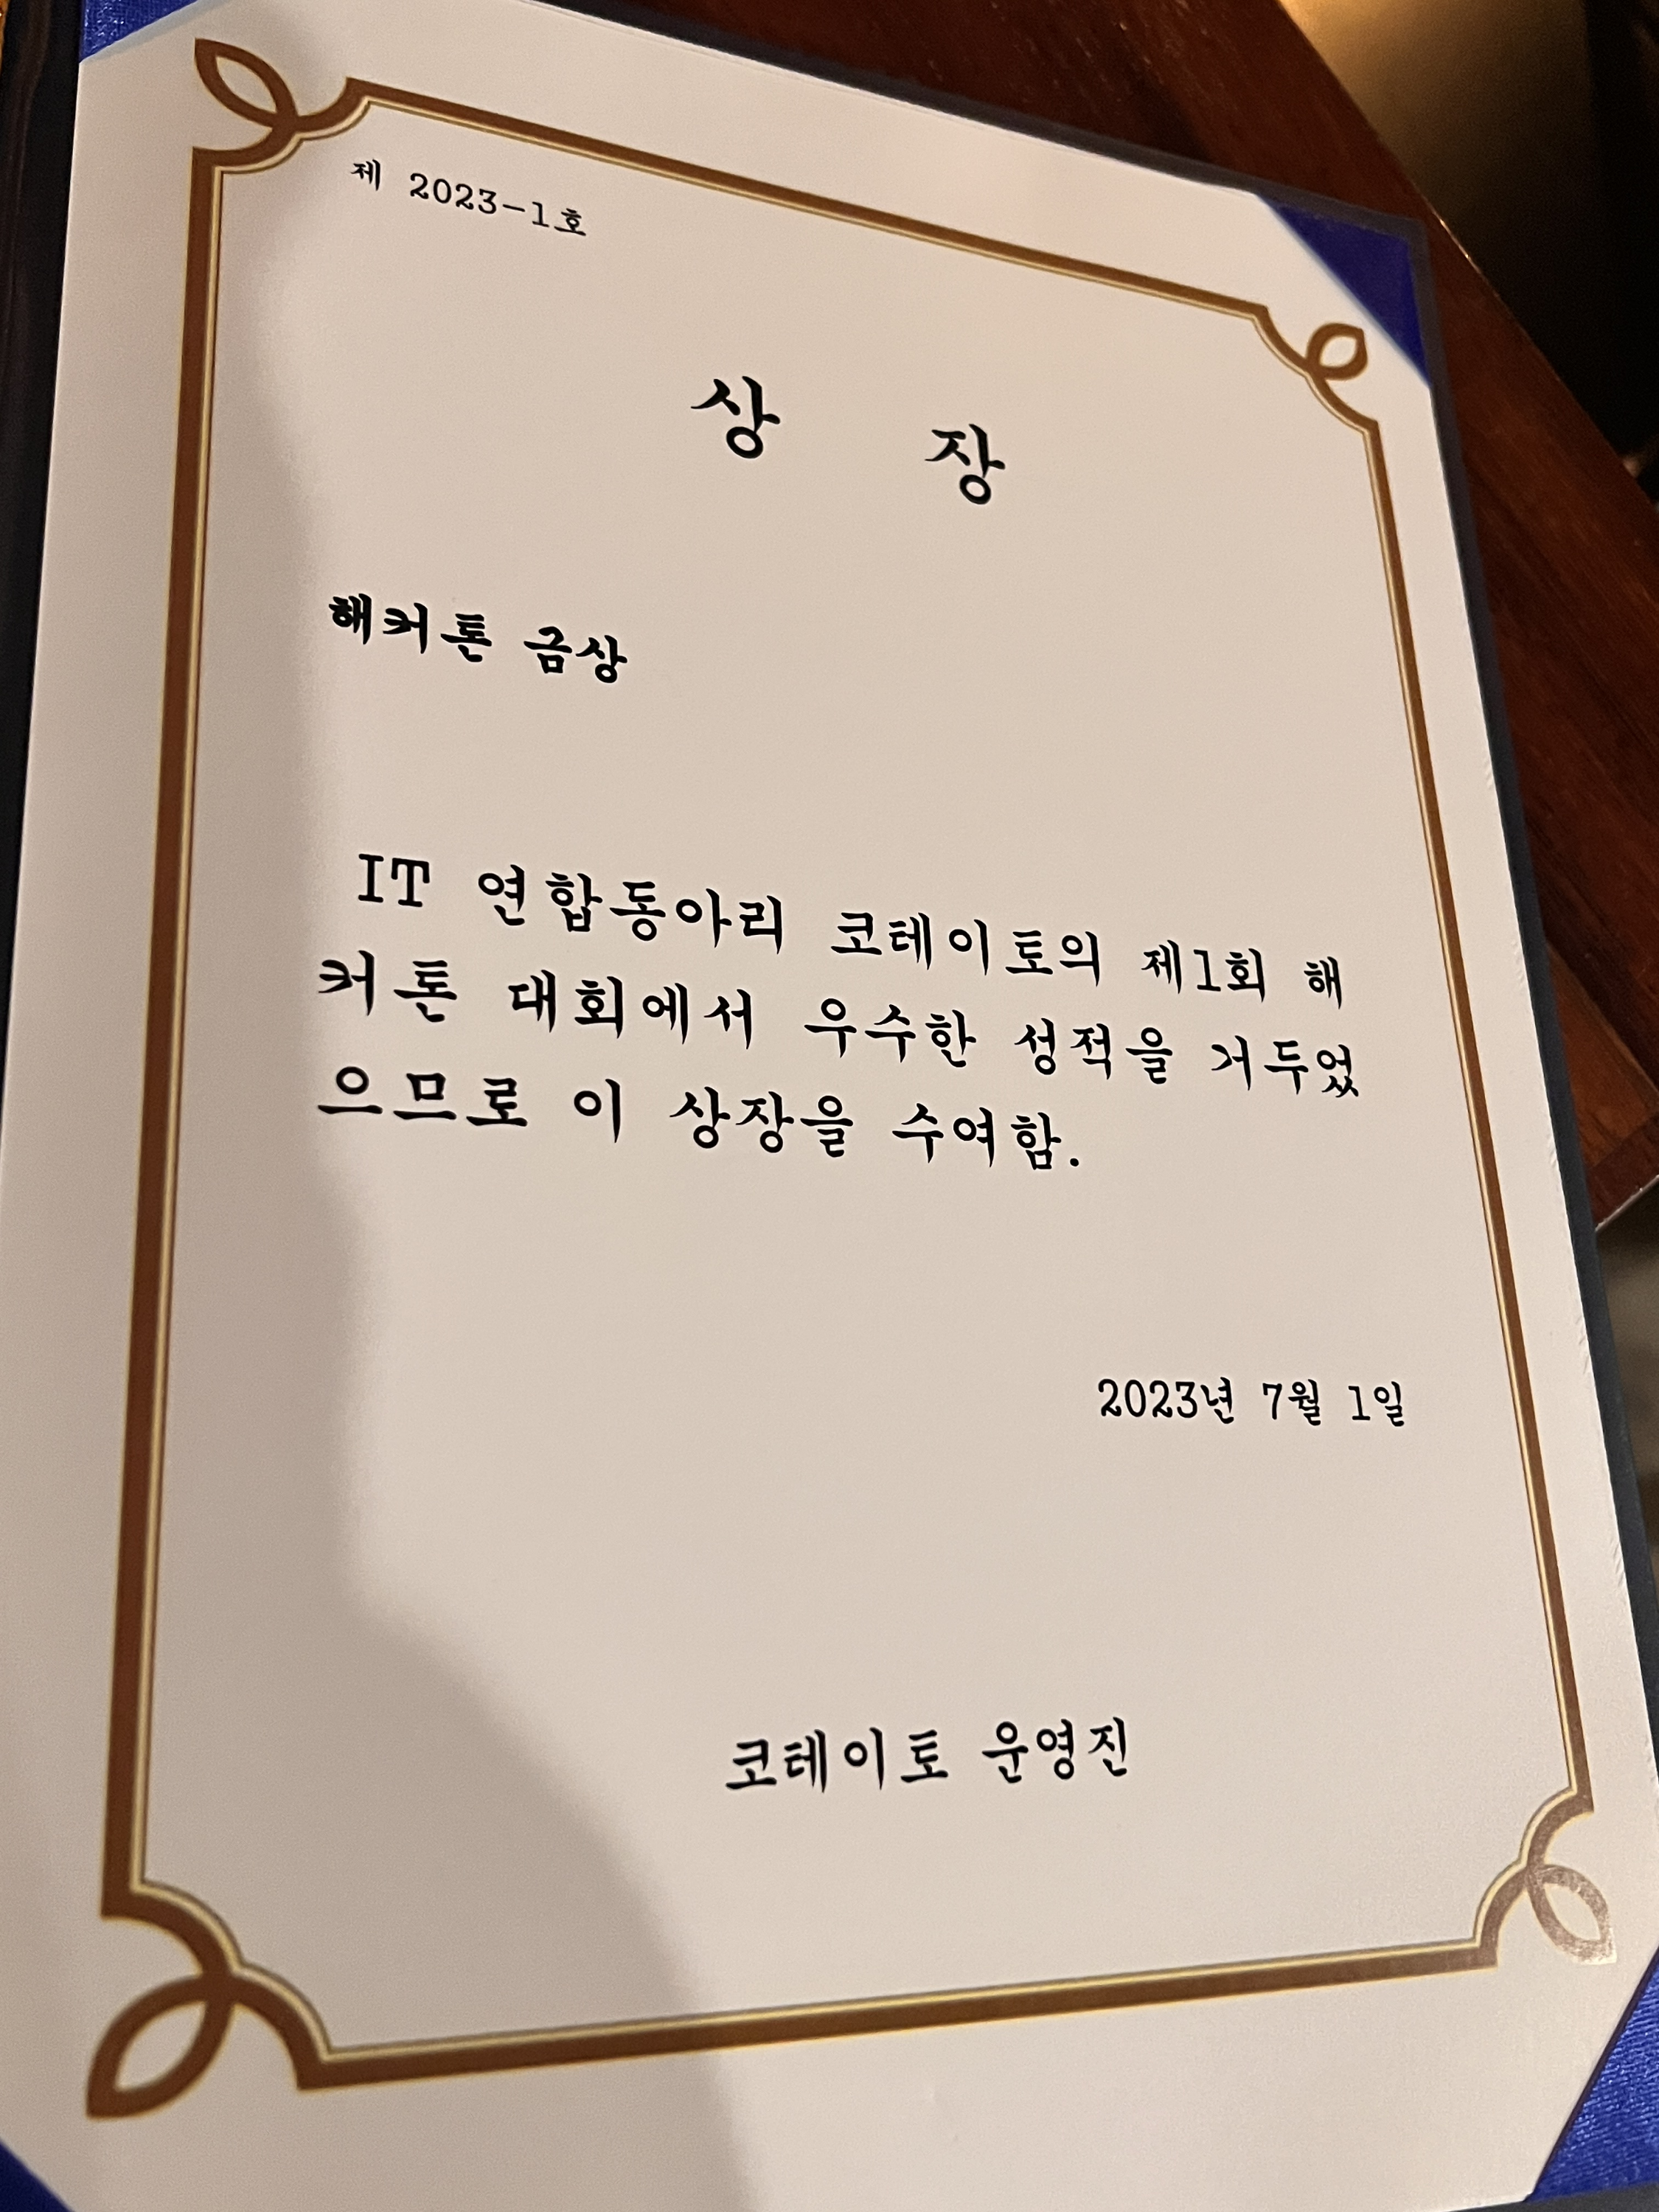 제 2023-1호
상 장
해커톤 금상
IT 연합동아리 코테이토의 제1회 해
커톤 대회에서 우수한 성적을 거두었
으므로 이 상장을 수여함.
2023년 7월 1일
코테이토 운영진